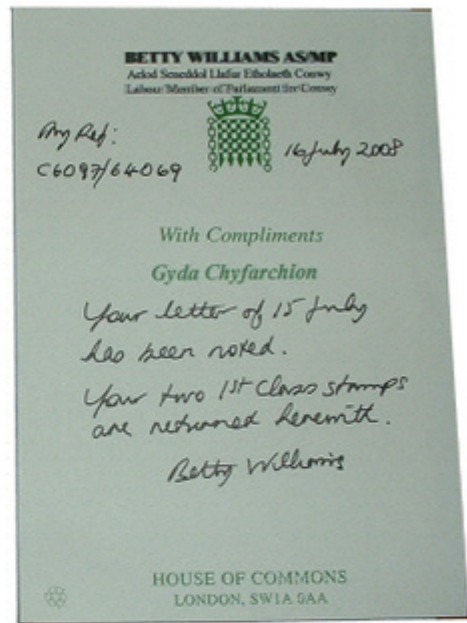 BETTY WILLIAMS AS/MP
Aelod Seneddol Llafur Etholaeth Conwy
Labour Member of Parliament for Conwy
My Ref:
C6097/64069
16 July 2008
With Compliments
Gyda Chyfarchion
Your letter of 15 July
has been noted.
Your two 1st Class stamps
are returned herewith.
Betty Williams
HOUSE OF COMMONS
LONDON, SW1A 0AA